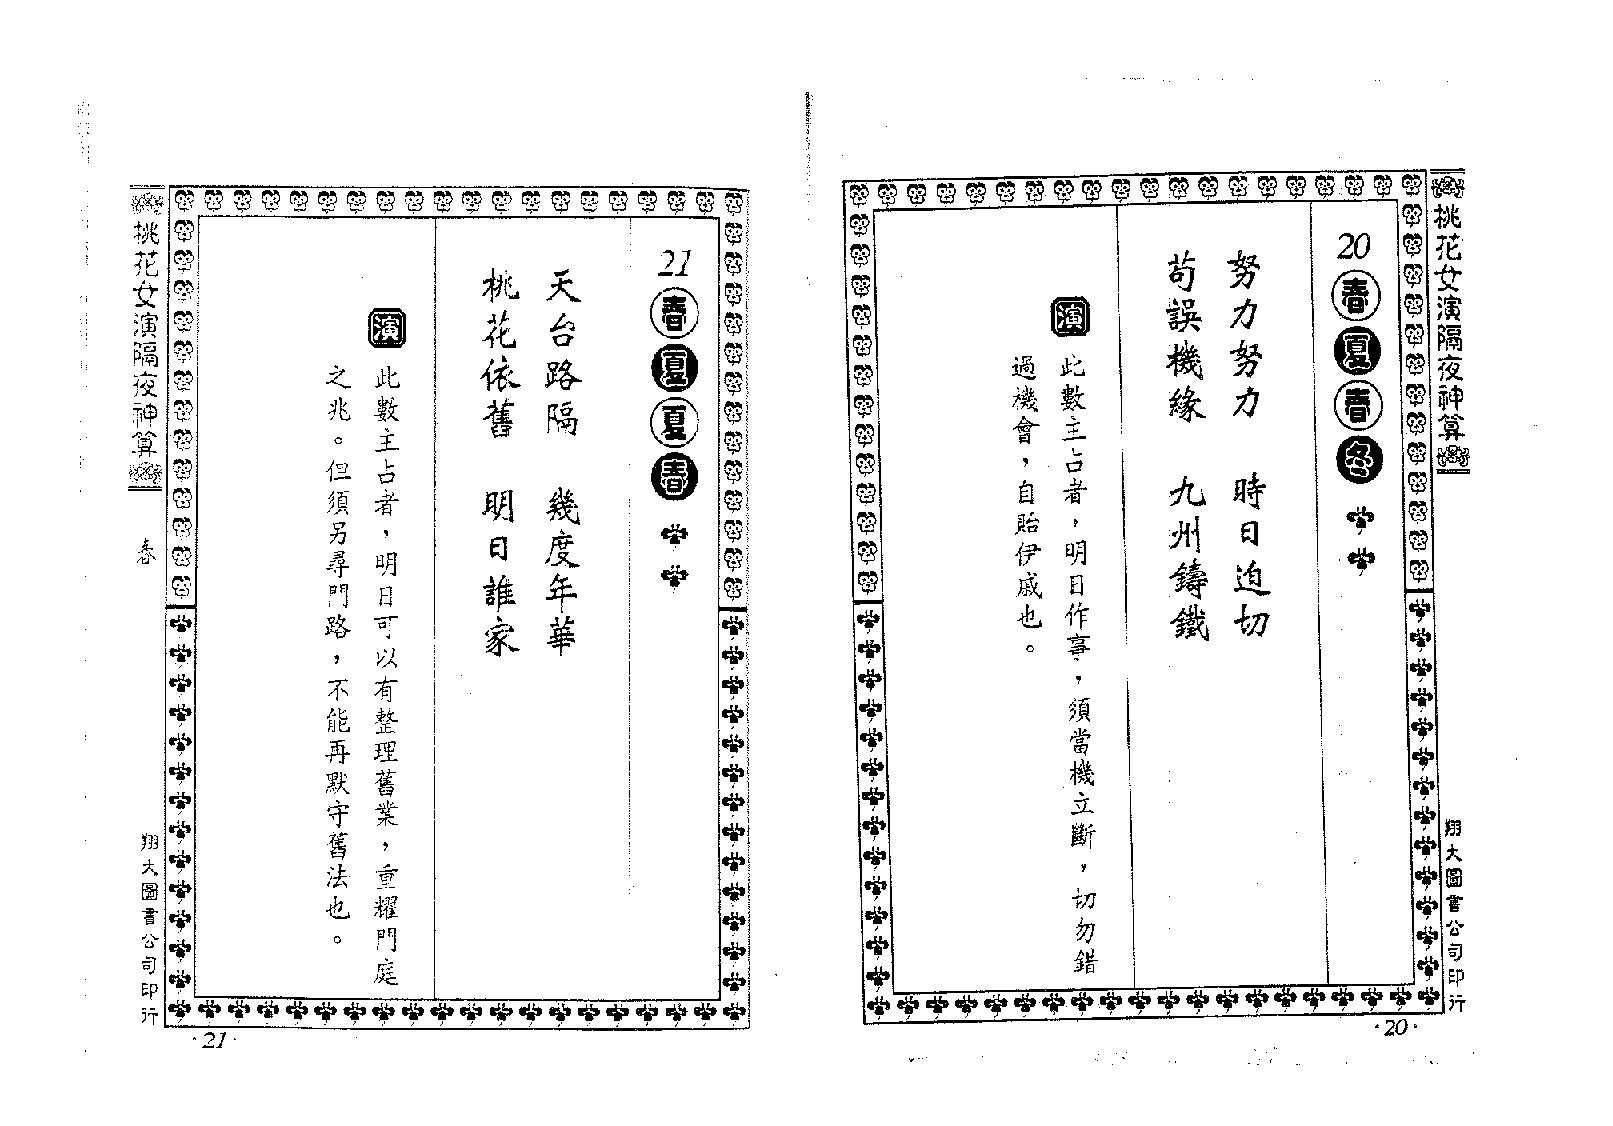 桃花女演隔夜神算
翔大圖書公司印行
20
春夏春冬
努力努力　時日迫切
苟誤機緣　九州鑄鐵
演
此數主占者，明日作事，須當機立斷，切勿錯
過機會，自貽伊戚也。
·20·
21
春夏夏春
天台路隔　幾度年華
桃花依舊　明日誰家
演
此數主占者，明日可以有整理舊業，重耀門庭
之兆。但須另尋門路，不能再默守舊法也。
桃花女演隔夜神算
春
翔大圖書公司印行
·21·